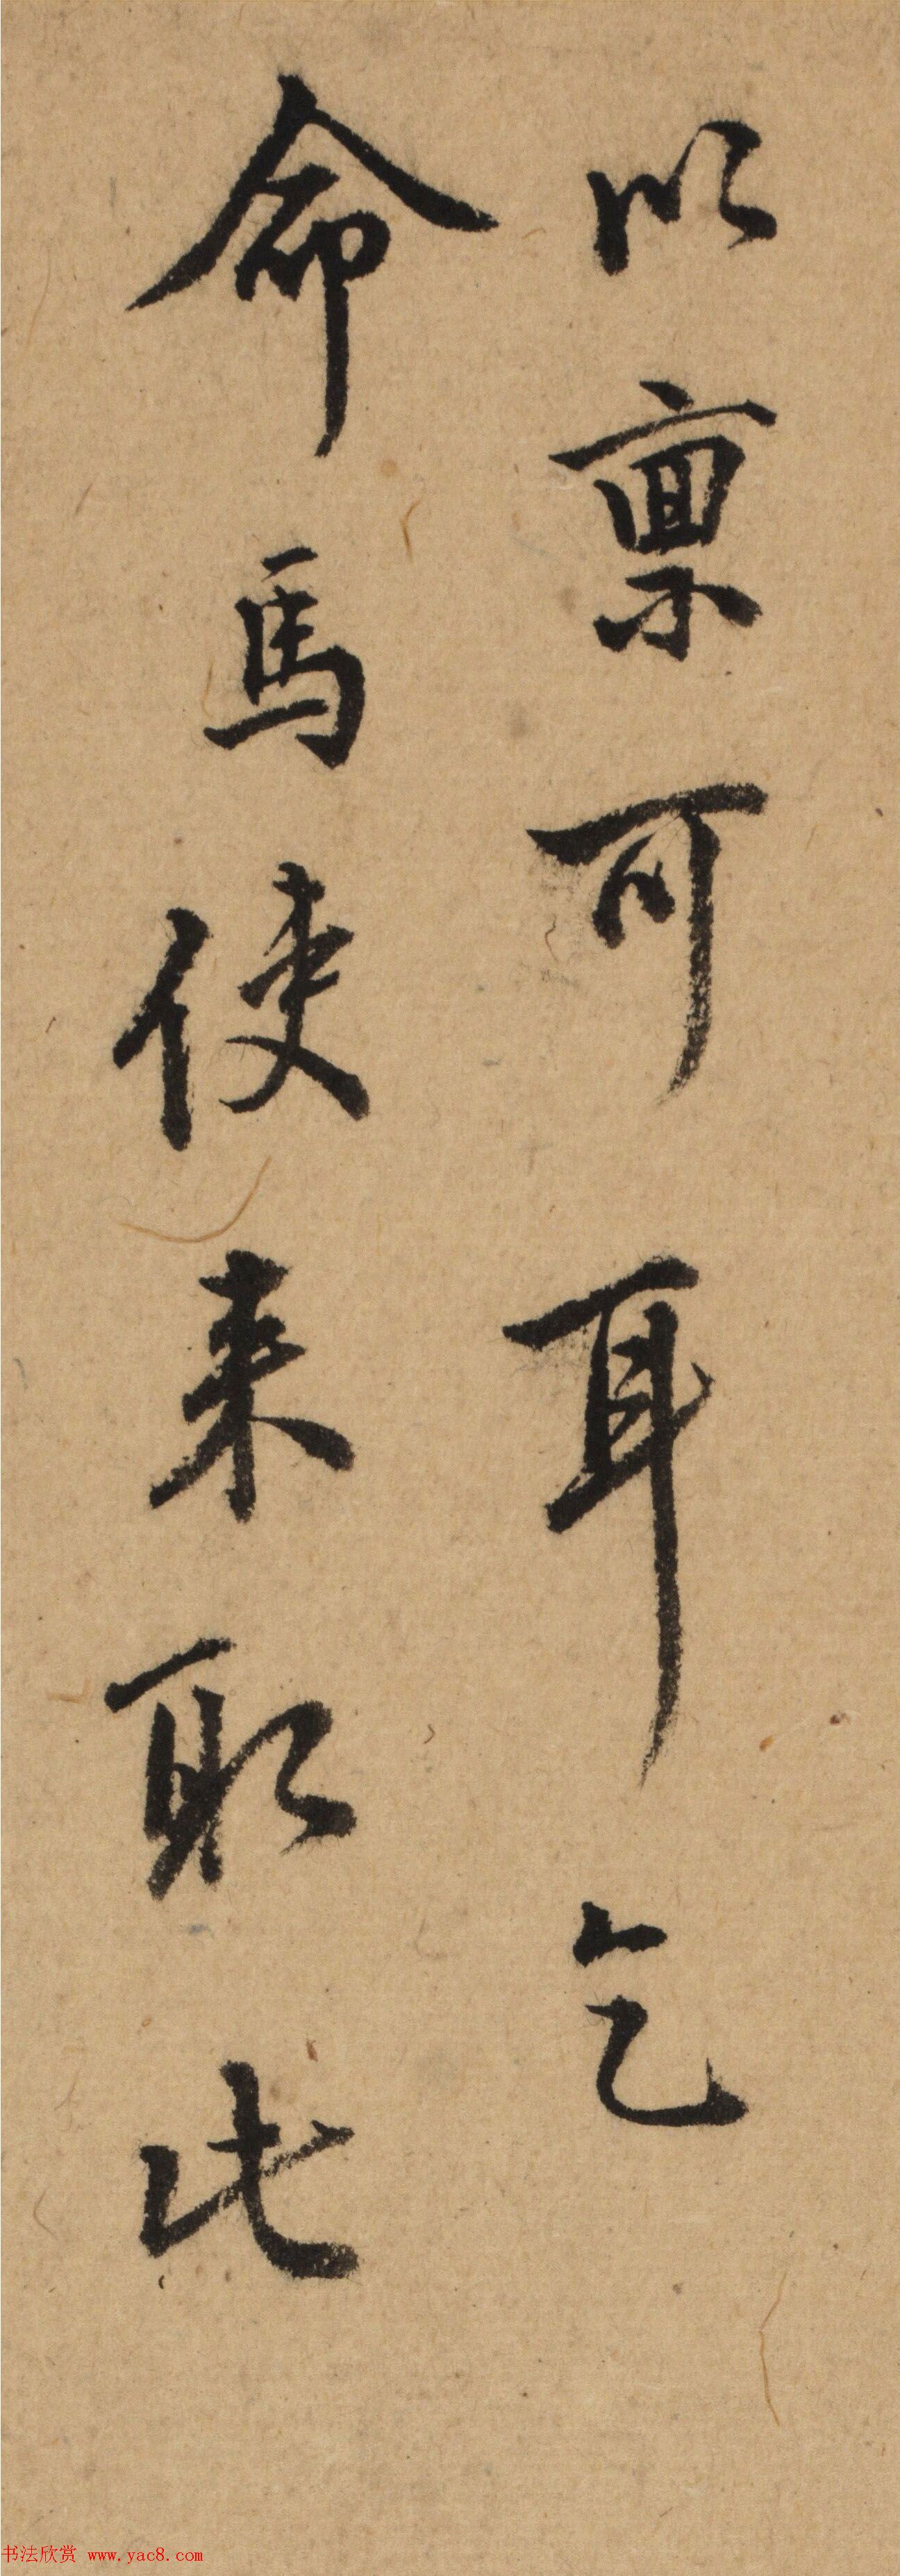 以禀可耳乞
命馬使来取此
书法欣赏 www.yac8.com